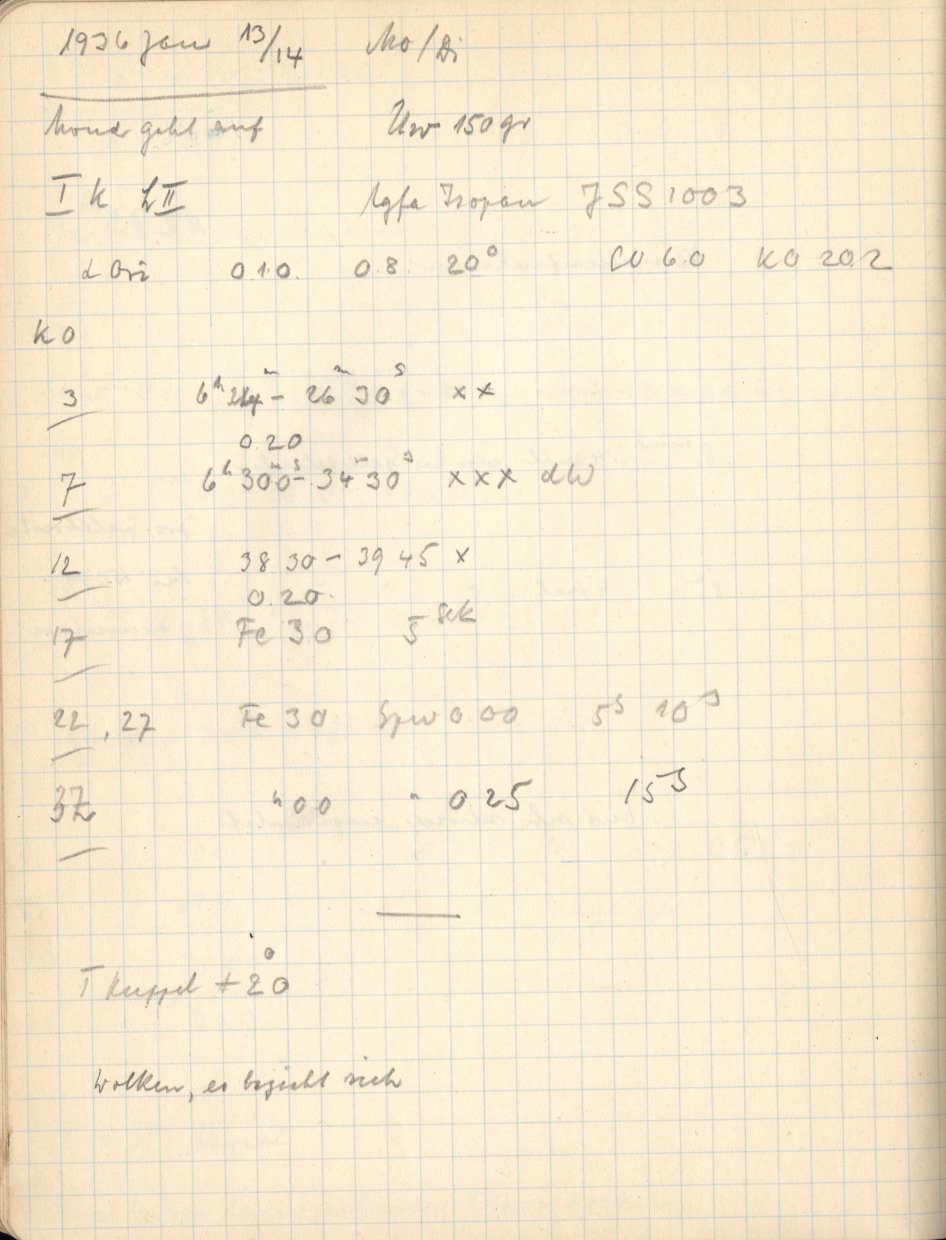 1936 Jan 13/14 Mo/Di
Mond geht auf Uw 150 gr
I K L II Agfa Isopan JSS 1003
α Ori 0.1.0. 0.8. 20° CU 6.0 KO 20.2
KO
3 6ʰ 24ᵐ - 26ᵐ 30ˢ x x
0.20
7 6ʰ 30ᵐ 0ˢ - 34ᵐ 30ˢ x x x dW
12 38 30 - 39 45 x
0.20.
17 Fe 30 5 sek
22, 27 Fe 30 Spw 0 00 5ˢ 10ˢ
37 " 0.0 " 0 25 15ˢ
T Kuppel + 2°0
Wolken, es bezieht sich